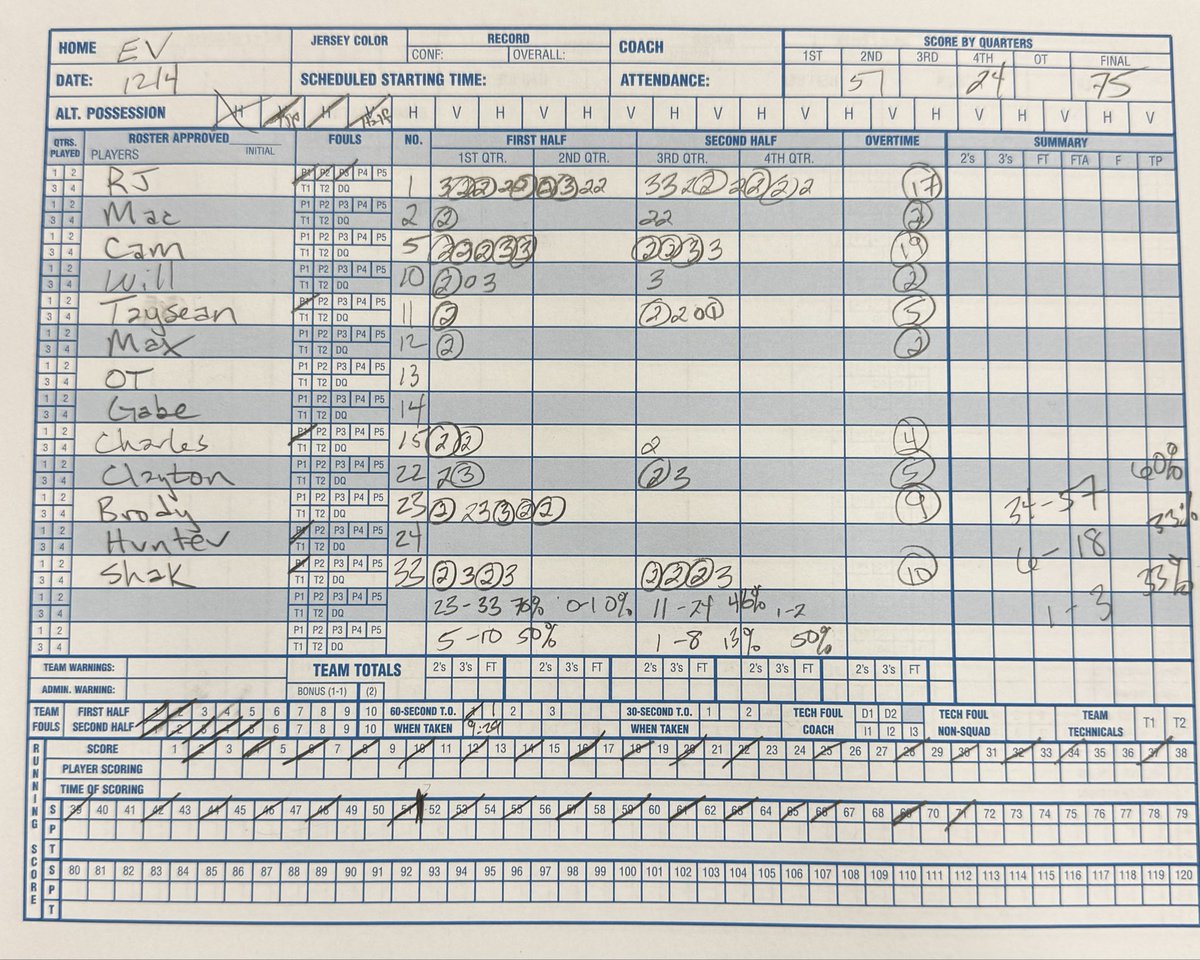 HOME EV JERSEY COLOR RECORD COACH SCORE BY QUARTERS
CONF: OVERALL: 1ST 2ND 3RD 4TH OT FINAL
DATE: 12/4 SCHEDULED STARTING TIME: ATTENDANCE: 51 24 75
ALT. POSSESSION H H H V H V H V H V H V H V H V
QTRS. PLAYED ROSTER APPROVED FOULS NO. FIRST HALF SECOND HALF OVERTIME SUMMARY
PLAYERS INITIAL 1ST QTR. 2ND QTR. 3RD QTR. 4TH QTR. 2's 3's FT FTA F TP
1 2 RJ P1 P2 P3 P4 P5 1 3 2 2 2 2 2 3 2 2 3 3 2 2 2 2 2 2 17
3 4 T1 T2 DQ
1 2 Mac P1 P2 P3 P4 P5 2 2 22 2
3 4 T1 T2 DQ
1 2 Cam P1 P2 P3 P4 P5 5 2 3 2 3 3 2 3 3 3 19
3 4 T1 T2 DQ
1 2 Will P1 P2 P3 P4 P5 10 2 0 3 3 2
3 4 T1 T2 DQ
1 2 Taysean P1 P2 P3 P4 P5 11 2 2 2 0 1 5
3 4 T1 T2 DQ
1 2 Max P1 P2 P3 P4 P5 12 2 2
3 4 T1 T2 DQ
1 2 OT P1 P2 P3 P4 P5 13
3 4 T1 T2 DQ
1 2 Gabe P1 P2 P3 P4 P5 14
3 4 T1 T2 DQ
1 2 Charles P1 P2 P3 P4 P5 15 2 2 2 4
3 4 T1 T2 DQ
1 2 Clayton P1 P2 P3 P4 P5 22 2 3 2 3 5 60%
3 4 T1 T2 DQ
1 2 Brody P1 P2 P3 P4 P5 23 2 2 3 3 2 2 9 34-57
3 4 T1 T2 DQ 33%
1 2 Hunter P1 P2 P3 P4 P5 24 6-18
3 4 T1 T2 DQ
1 2 Shak P1 P2 P3 P4 P5 33 2 3 2 3 2 2 2 3 10 33%
3 4 T1 T2 DQ
1 2 P1 P2 P3 P4 P5 23-33 70% 0-1 0% 11-24 46% 1-2 1-3
3 4 T1 T2 DQ
1 2 P1 P2 P3 P4 P5 5-10 50% 1-8 13% 50%
3 4 T1 T2 DQ
TEAM WARNINGS: TEAM TOTALS 2's 3's FT 2's 3's FT 2's 3's FT 2's 3's FT 2's 3's FT
ADMIN. WARNING: BONUS (1-1) (2)
TEAM FOULS FIRST HALF 1 2 3 4 5 6 7 8 9 10 60-SECOND T.O. 1 1 2 3 30-SECOND T.O. 1 2 TECH FOUL COACH D1 D2 TECH FOUL NON-SQUAD TEAM TECHNICALS T1 T2
SECOND HALF 1 2 3 4 5 6 7 8 9 10 WHEN TAKEN 9:29 WHEN TAKEN I1 I2 I3
RUNNING SCORE
SCORE 1 2 3 4 5 6 7 8 9 10 11 12 13 14 15 16 17 18 19 20 21 22 23 24 25 26 27 28 29 30 31 32 33 34 35 36 37 38
PLAYER SCORING
TIME OF SCORING
S 39 40 41 42 43 44 45 46 47 48 49 50 51 52 53 54 55 56 57 58 59 60 61 62 63 64 65 66 67 68 69 70 71 72 73 74 75 76 77 78 79
P
T
S 80 81 82 83 84 85 86 87 88 89 90 91 92 93 94 95 96 97 98 99 100 101 102 103 104 105 106 107 108 109 110 111 112 113 114 115 116 117 118 119 120
P
T